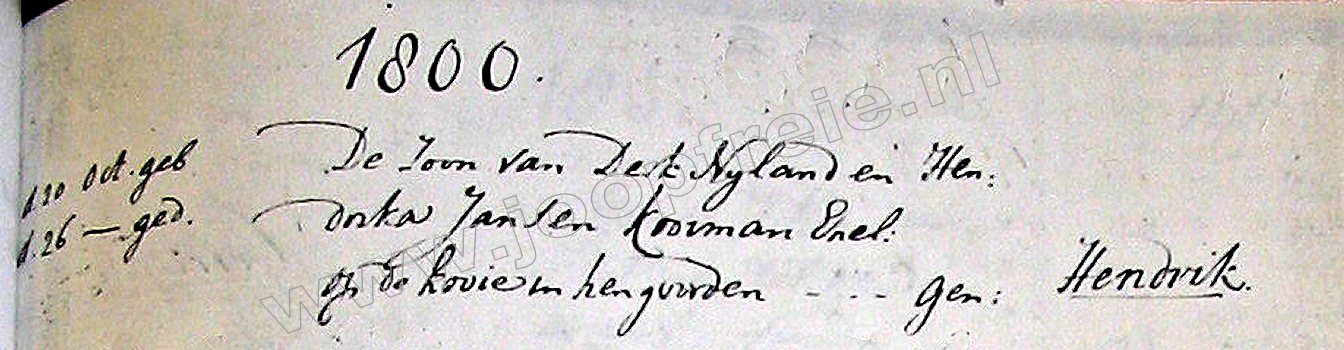 1800.
d. 20 Oct. geb De Zoon van Derk Nyland en Hen:
d. 26 — ged. dorka Jansen Kooiman Enel:
op de kovie in hengvorden - - - Gen: Hendrik.
www.jeopfreie.nl